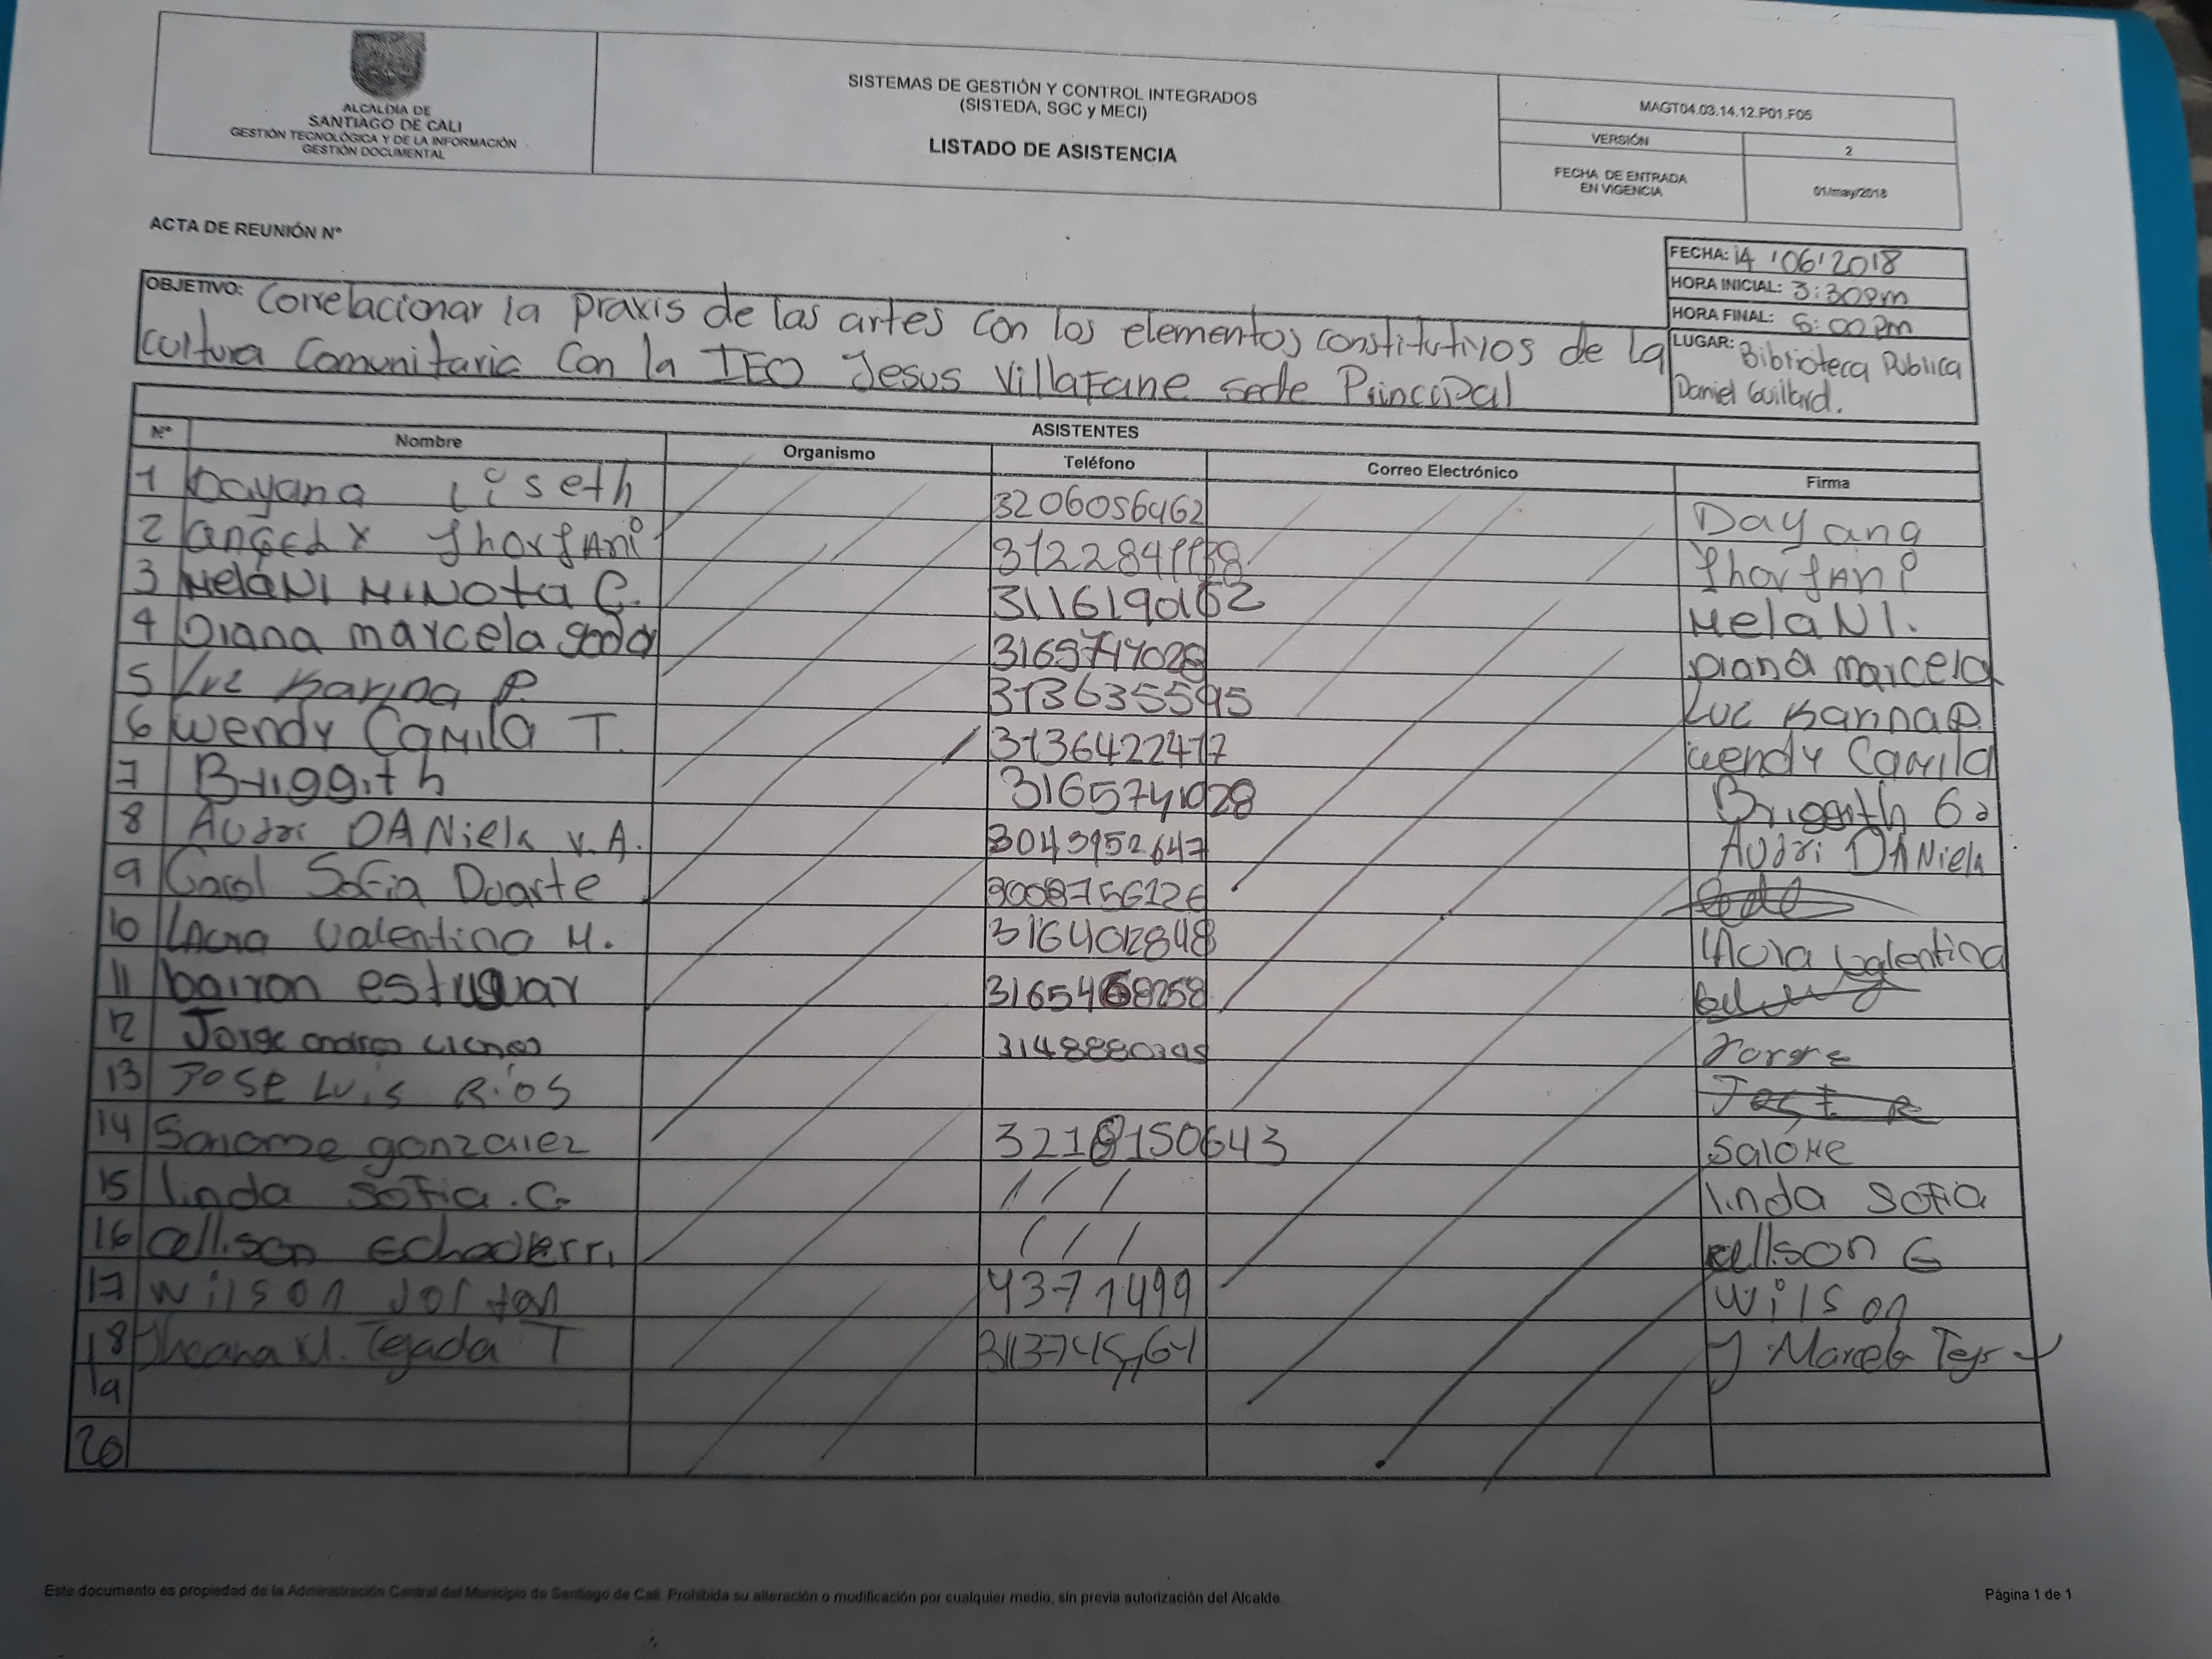 ALCALDÍA DE
SANTIAGO DE CALI
GESTIÓN TECNOLÓGICA Y DE LA INFORMACIÓN
GESTIÓN DOCUMENTAL
SISTEMAS DE GESTIÓN Y CONTROL INTEGRADOS
(SISTEDA, SGC y MECI)
LISTADO DE ASISTENCIA
MAGT04.03.14.12.P01.F05
VERSIÓN 2
FECHA DE ENTRADA
EN VIGENCIA
01/may/2018
ACTA DE REUNIÓN Nº
FECHA: 14 '06'2018
HORA INICIAL: 3:30pm
HORA FINAL: 6:00pm
LUGAR: Biblioteca Publica
Daniel Guillard.
OBJETIVO: Correlacionar la Praxis de las artes con los elementos constitutivos de la
cultura Comunitaria Con la IEO Jesus Villafane sede Principal
ASISTENTES
Nº Nombre Organismo Teléfono Correo Electrónico Firma
1 Dayana Liseth 3206056462 Dayana
2 JhorjAni JhorjAni
3 MelaNI MINota C. 3116190162 MelaNI.
4 Diana marcela Diana marcela
5 Luz Karina P. 3136355595 Luz Karina P.
6 Wendy Camila T. 3136422417 wendy Camila
7 Briggith 3165741028 Briggith
8 Audri DANiela V.A. 3043952647 Audri DANiela
9 Carol Sofia Duarte
10 Laura Valentina M. Laura Valentina
11 bairon
12 Jorge Jorge
13 Jose Luis Rios Jose R
14 gonzalez Salome
15 linda Sofia. G. / / / linda Sofia
16 / / /
17 Wilson 4371499 Wilson
18 Tejada T
19
20
Este documento es propiedad de la Administración Central del Municipio de Santiago de Cali. Prohibida su alteración o modificación por cualquier medio, sin previa autorización del Alcalde.
Página 1 de 1